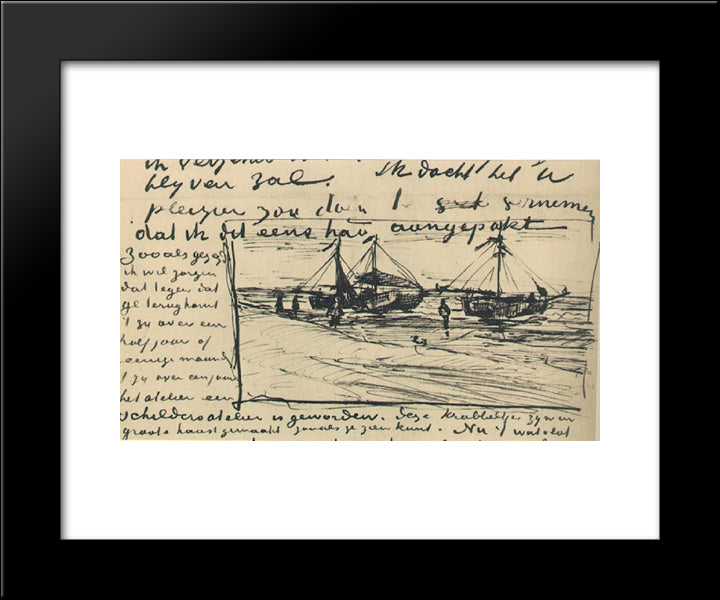 blijven zal. Ik dacht het U
plezier zou doen te vernemen
dat ik dit eens had aangepakt
Zooals gezegd
ik wil zorgen
dat tegen dat
ge terugkomt
't zij over een
half jaar of
eenige maand
't zij over een jaar
het atelier een
schildersatelier is geworden. Deze krabbeltjes zijn in
groote haast gemaakt zooals ge zien kunt. Nu 't wat